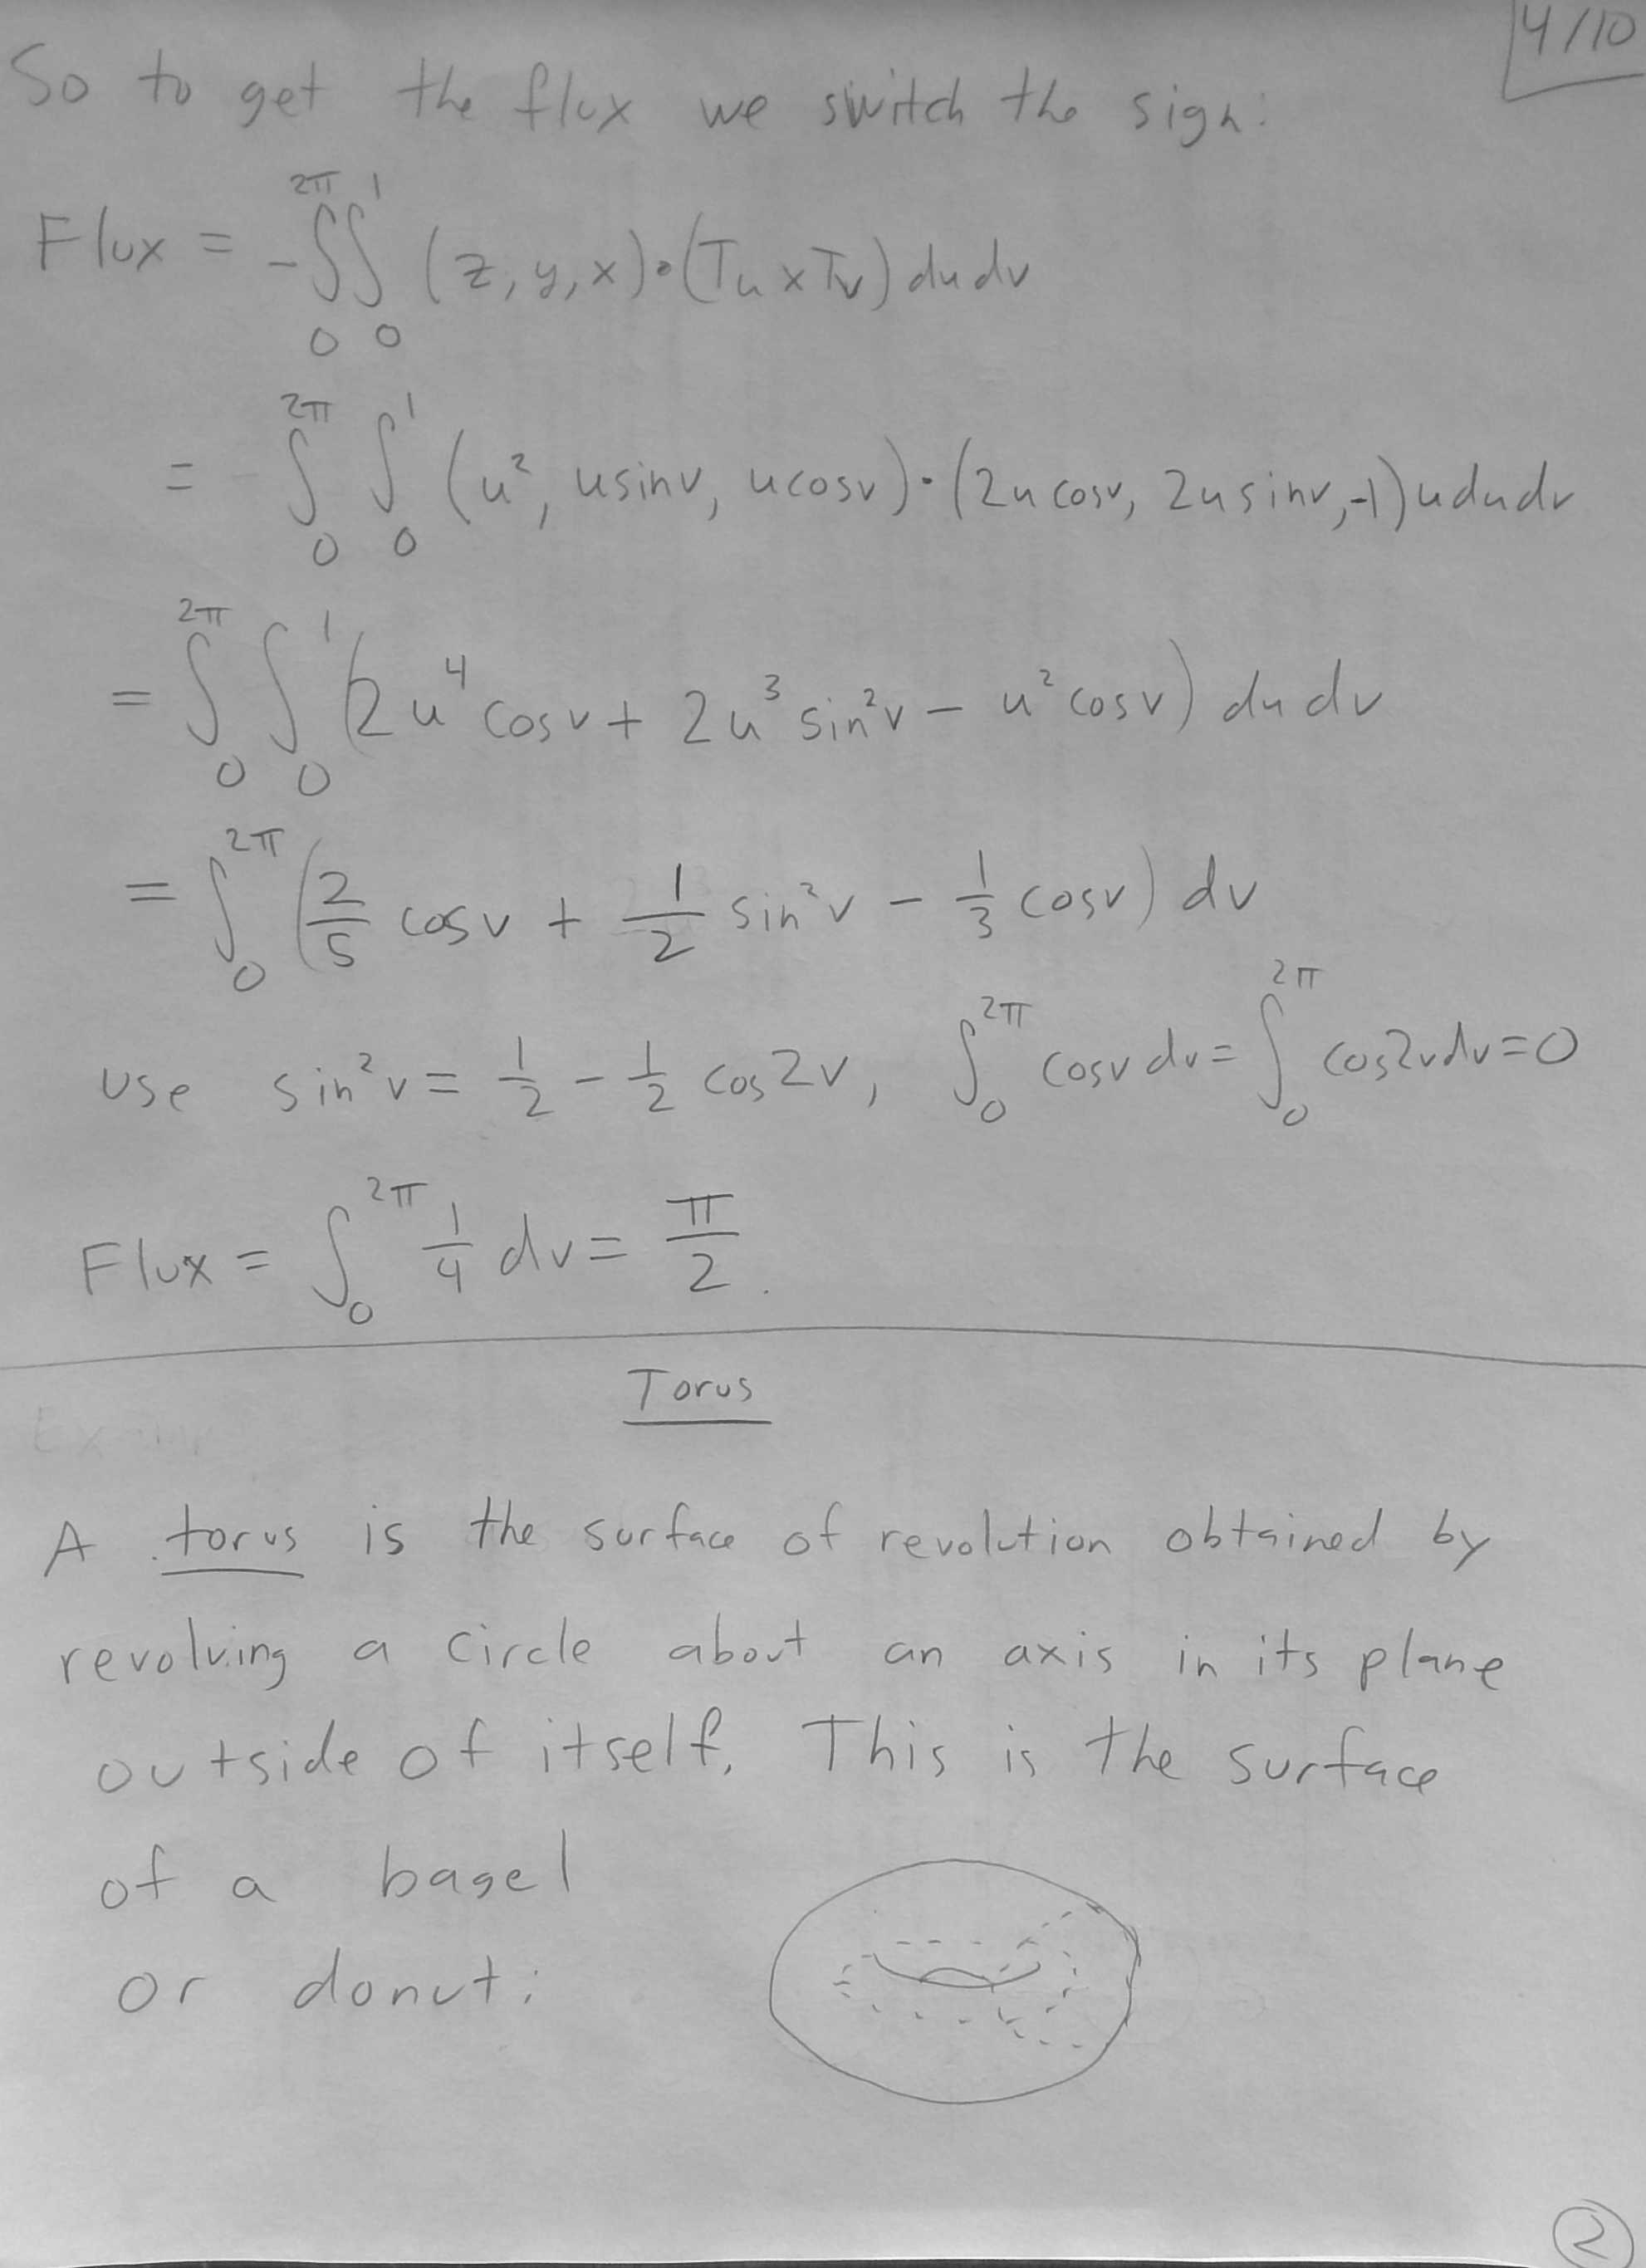 4/10
So to get the flux we switch the sign:
Flux = -∫₀^{2π}∫₀^1 (z, y, x)•(Tu × Tv) du dv
= ∫₀^{2π}∫₀^1 (u², u sinv, u cosv)•(2u cosv, 2u sinv, -1) u du dv
= ∫₀^{2π}∫₀^1 (2u⁴ cosv + 2u³ sin²v - u² cosv) du dv
= ∫₀^{2π} (2/5 cosv + 1/2 sin²v - 1/3 cosv) dv
use sin²v = 1/2 - 1/2 cos2v, ∫₀^{2π} cosv dv = ∫₀^{2π} cos2v dv = 0
Flux = ∫₀^{2π} 1/4 dv = π/2.
Torus
A torus is the surface of revolution obtained by
revolving a circle about an axis in its plane
outside of itself. This is the surface
of a bagel
or donut:
2